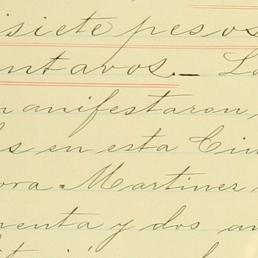 siete pesos
ntavos.— L
manifestaron
s en esta Ciu
ora Martinez
enta y dos a